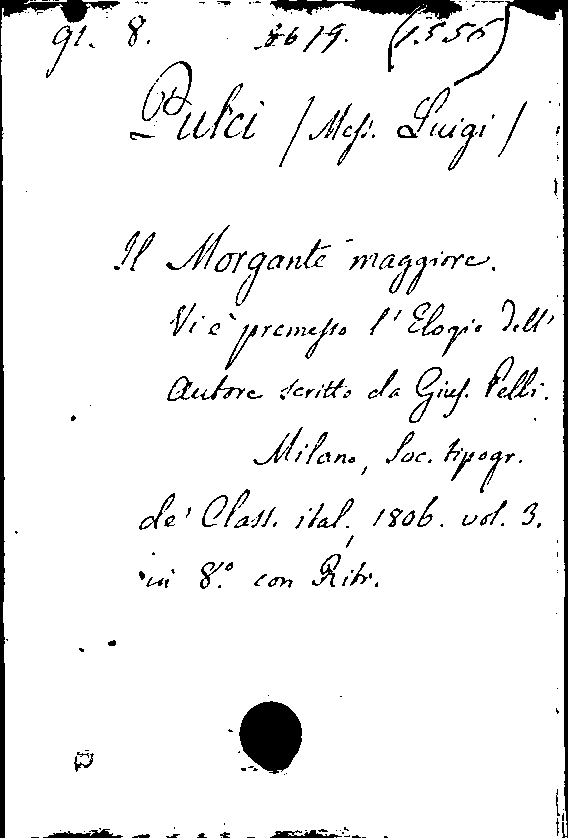 gl. 8. 3619. (1.556)
Pulci / Mess. Luigi /
Il Morgante maggiore.
Vi è premesso l' Elogio dell'
Autore scritto da Gius. Pelli.
Milano, Soc. tipogr.
de' Class. ital., 1806. vol. 3.
in 8.° con Ritr.